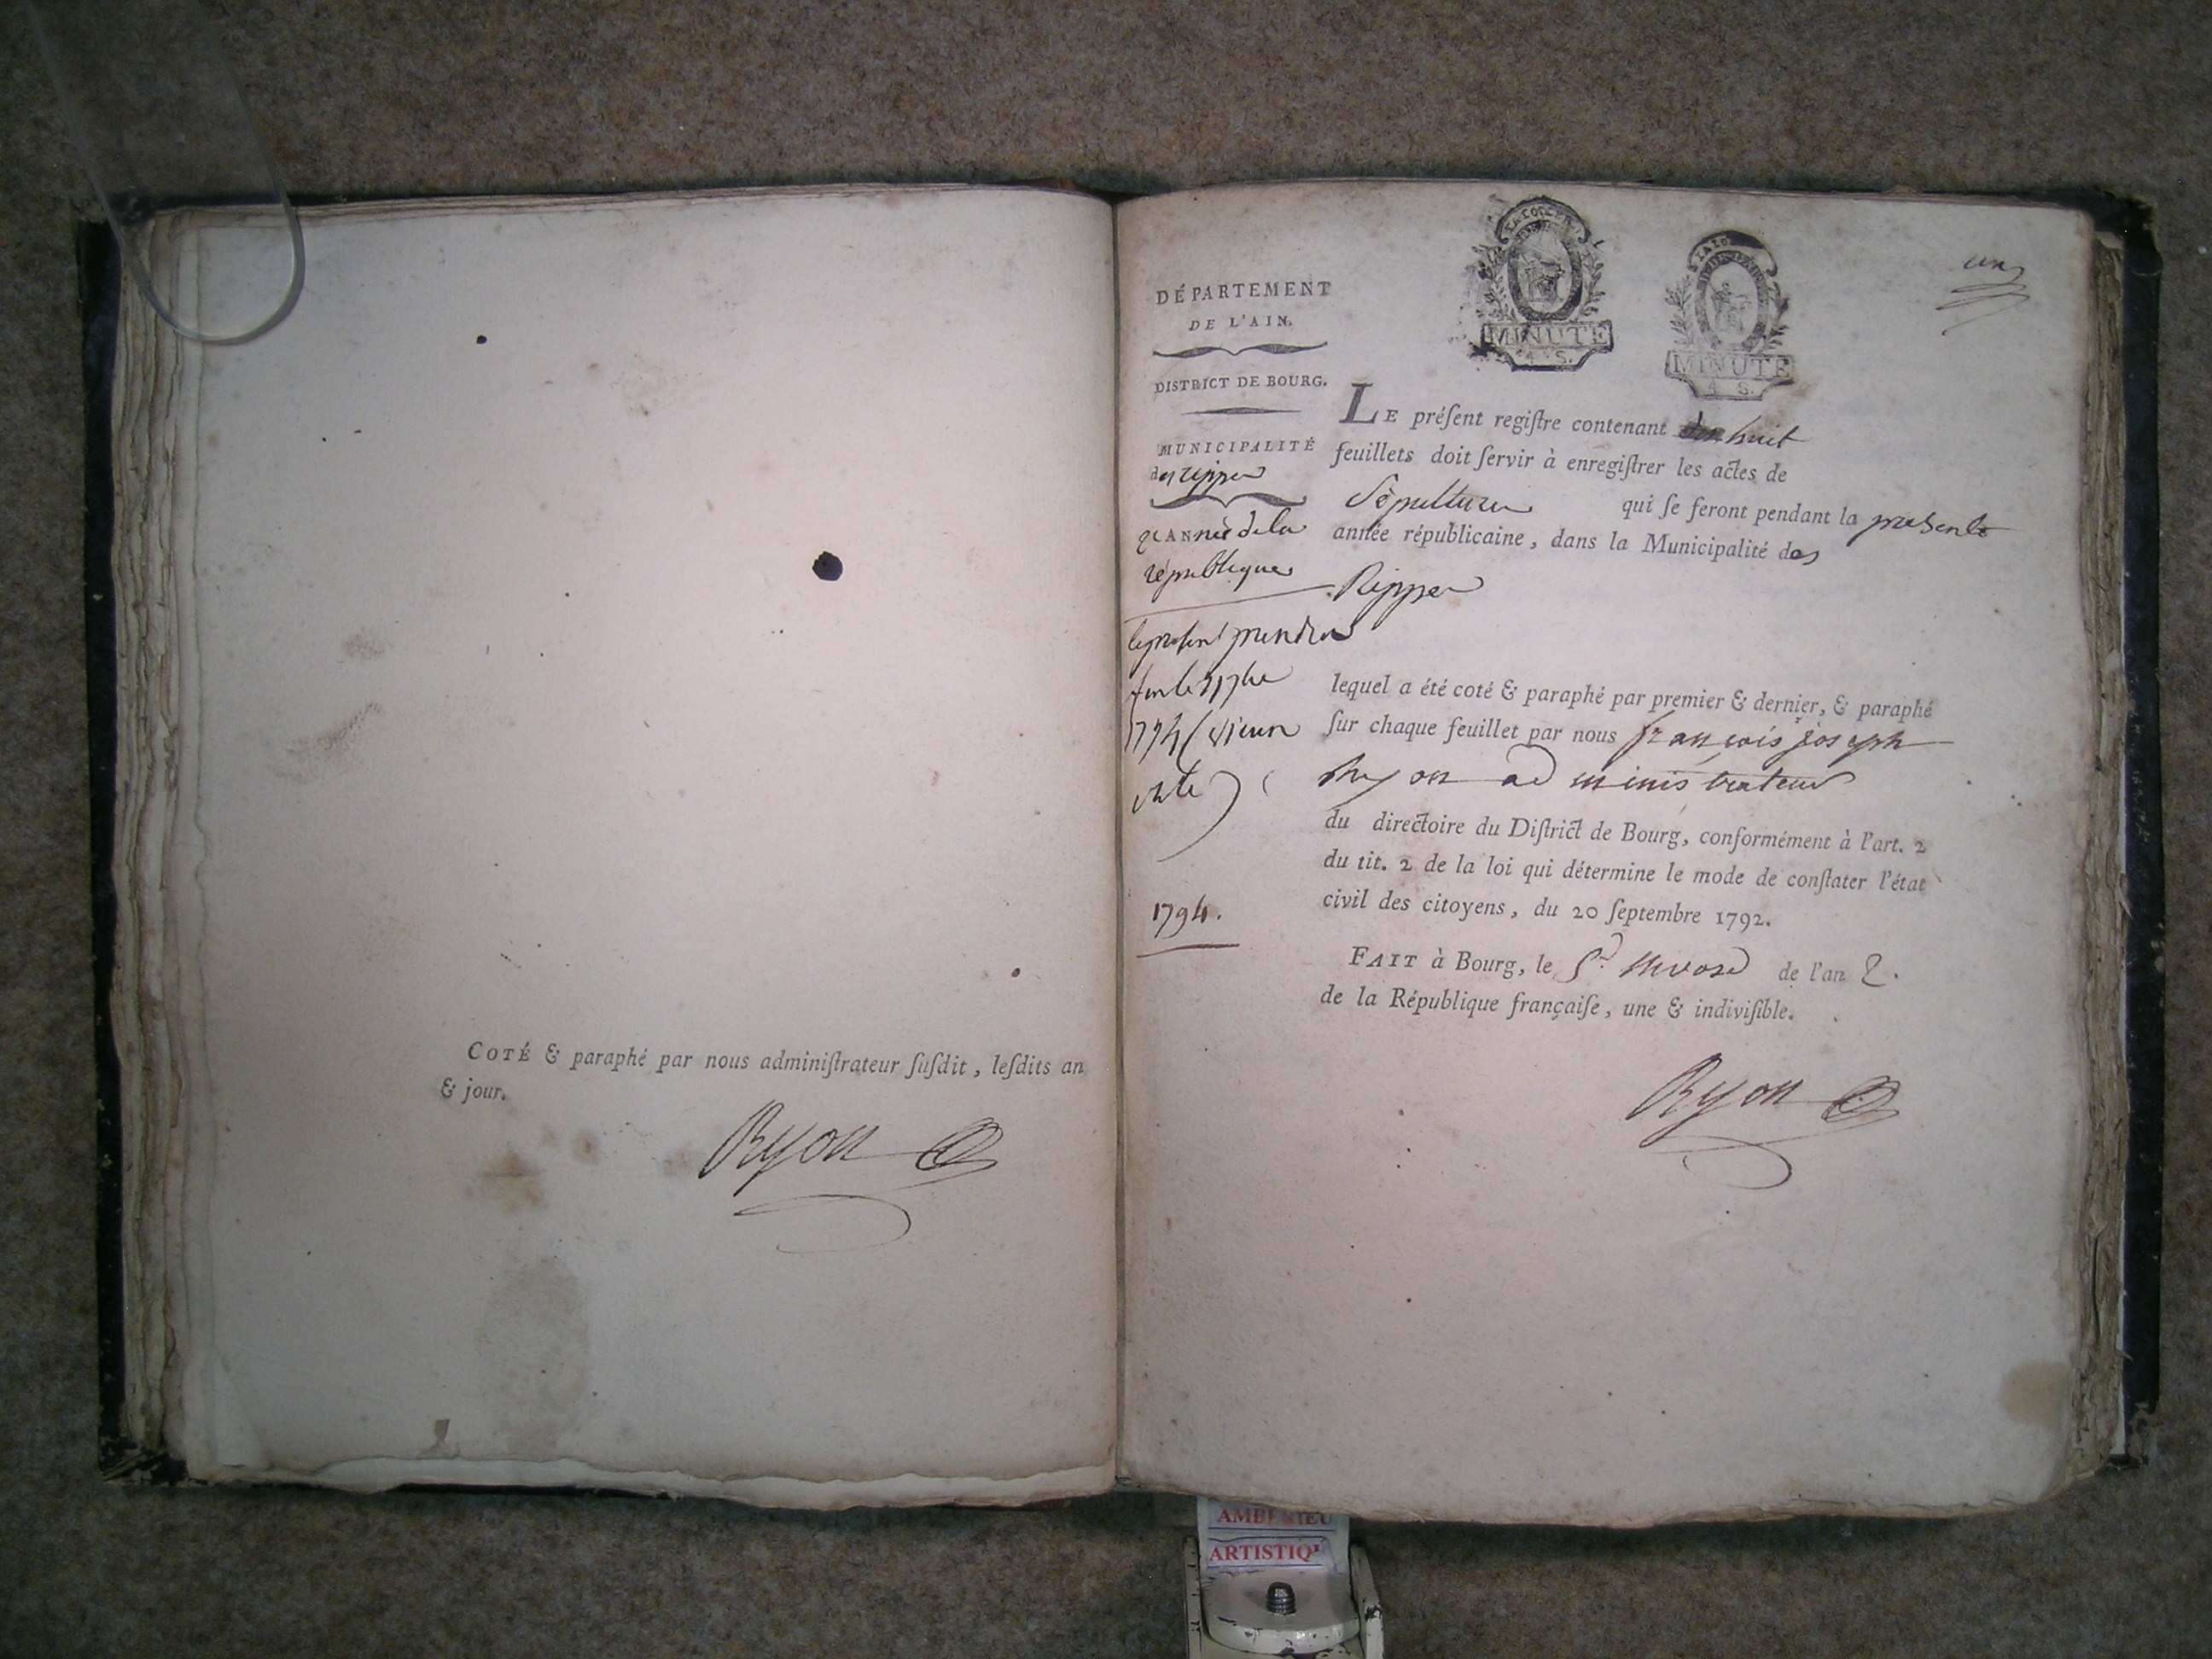 COTÉ & paraphé par nous adminiſtrateur ſuſdit, leſdits an
& jour.
Ryon
un
MINUTE
4 S.
MINUTE
4 S.
DÉPARTEMENT
DE L'AIN.
DISTRICT DE BOURG.
MUNICIPALITÉ
des Rippes
2e ANnée de la
république
le present prendra
1794.
LE préſent regiſtre contenant huit
feuillets doit ſervir à enregiſtrer les actes de
Sépultures qui ſe feront pendant la presente
année républicaine, dans la Municipalité des
Rippes
lequel a été coté & paraphé par premier & dernier, & paraphé
ſur chaque feuillet par nous françois joseph
Ryon administrateur
du directoire du Diſtrict de Bourg, conformément à l'art. 2
du tit. 2 de la loi qui détermine le mode de conſtater l'état
civil des citoyens, du 20 ſeptembre 1792.
FAIT à Bourg, le 5 nivose de l'an 2.
de la République françaiſe, une & indiviſible.
Ryon
AMBERIEU
ARTISTIQU